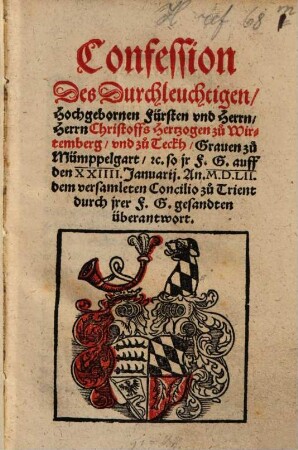 H ref 68
Confession
Des Durchleuchtigen/
Hochgebornen Fürsten vnd Herrn/
Herrn Christoffs Hertzogen zů Wir-
temberg/ vnd zů Teckh/ Grauen zů
Mümppelgart/ ꝛc. so jr F. G. auff
den XXIIII. Januarij. An. M.D.LII.
dem versamleten Concilio zů Trient
durch jrer F. G. gesandten
überantwort.